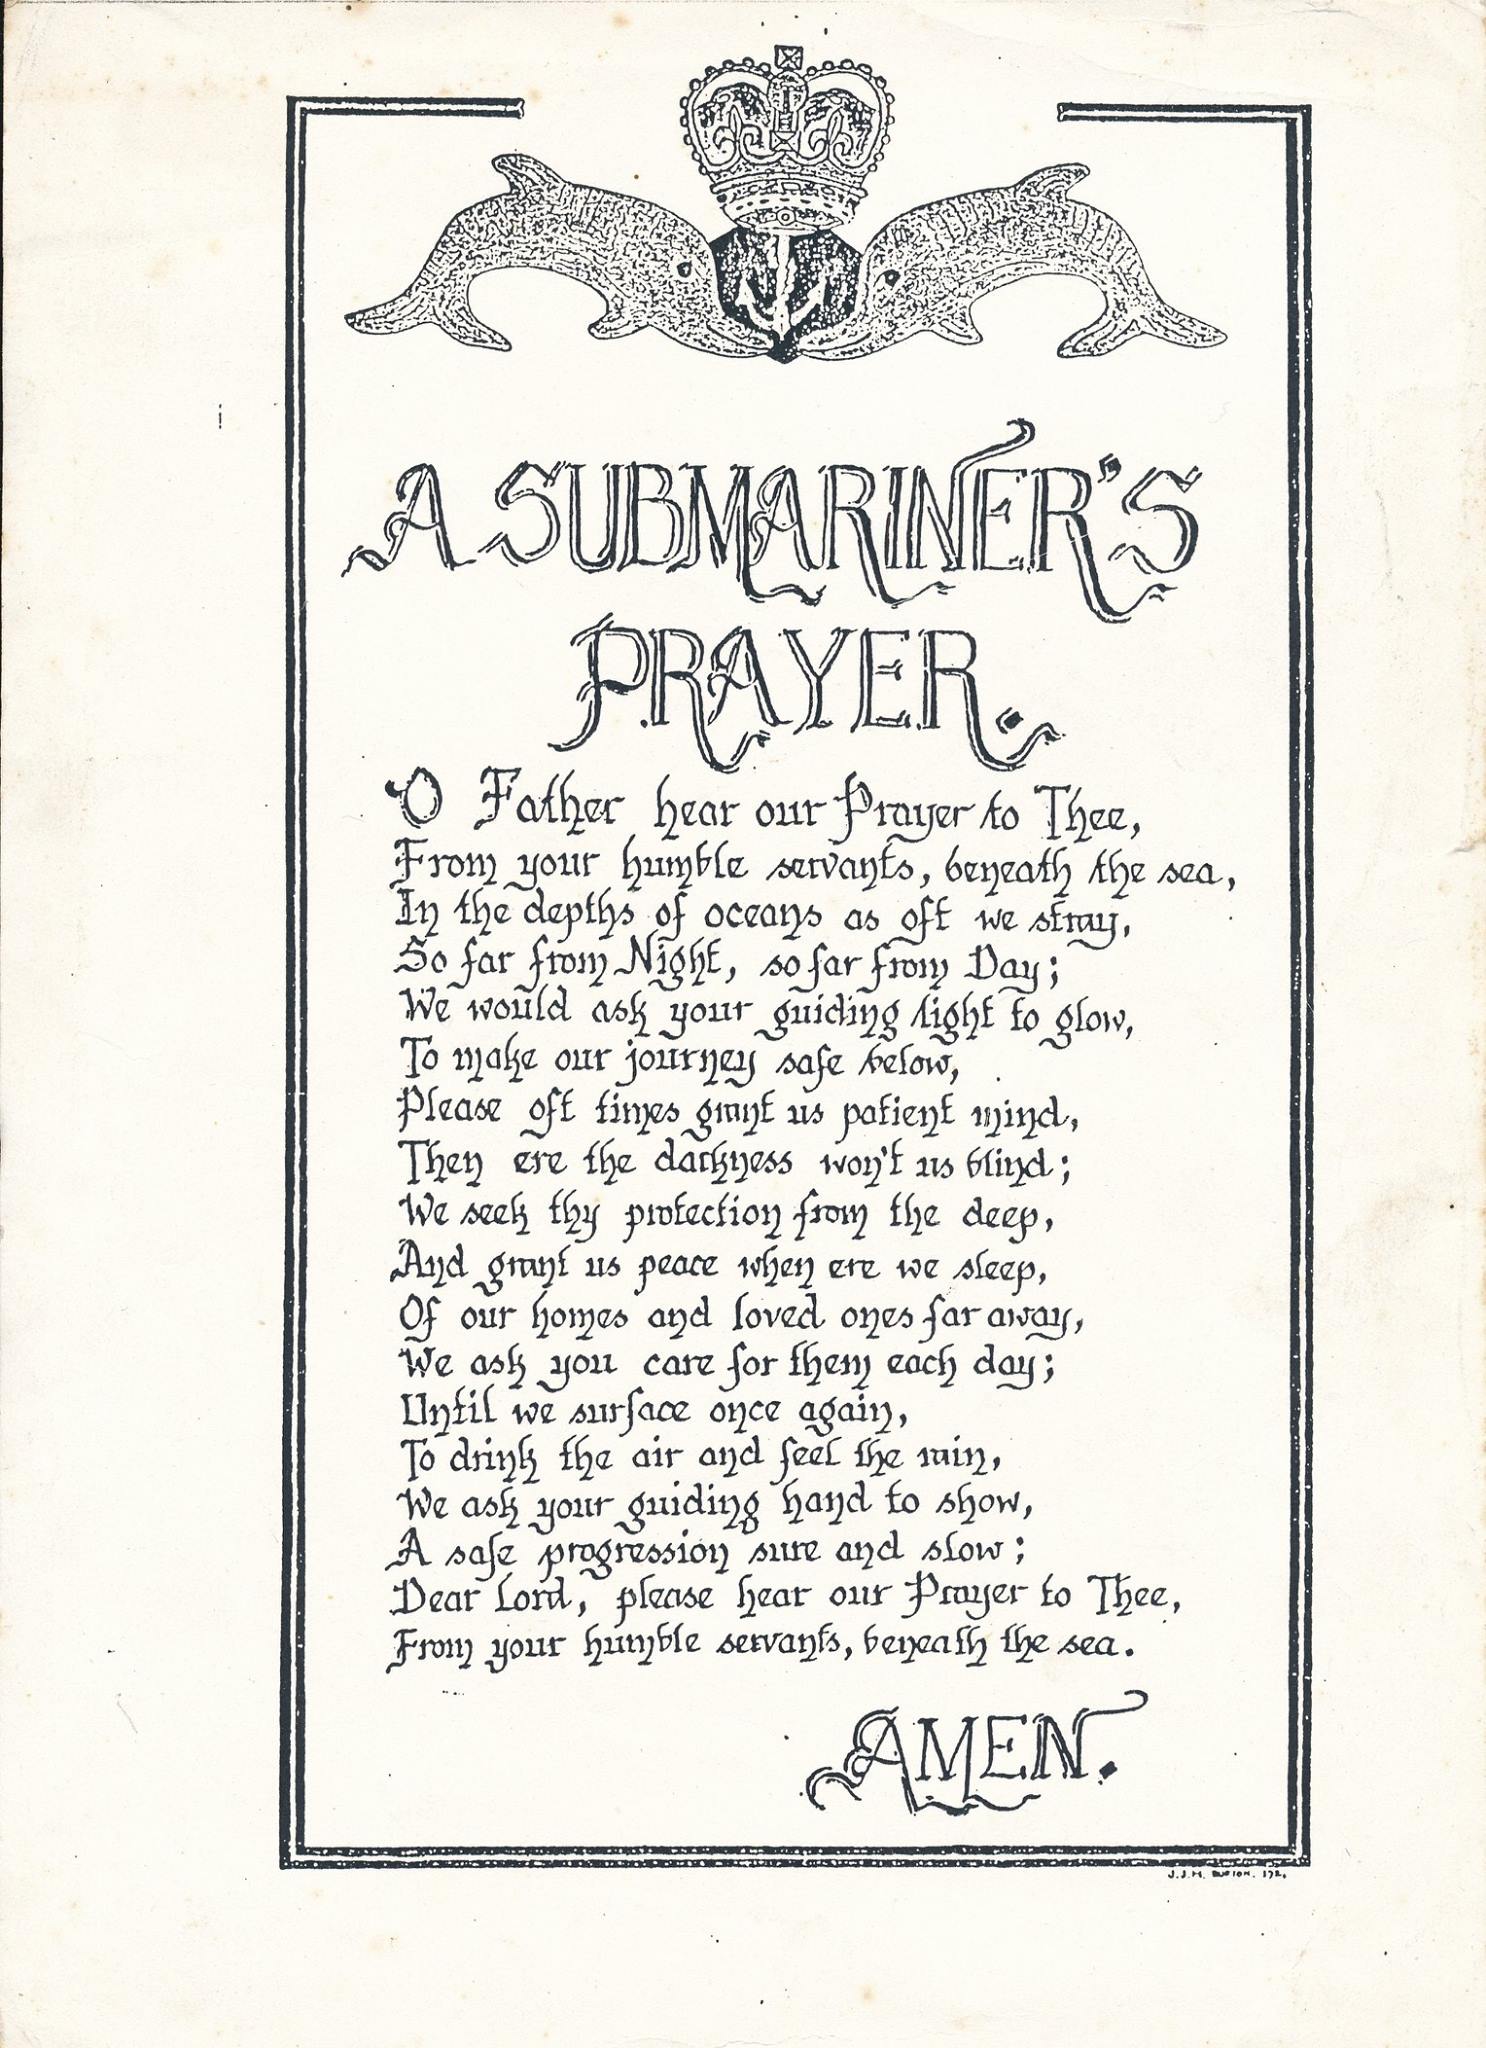 A SUBMARINER'S
PRAYER.
O Father hear our Prayer to Thee,
From your humble servants, beneath the sea,
In the depths of oceans as oft we stray,
So far from Night, so far from Day;
We would ask your guiding light to glow,
To make our journey safe below,
Please oft times grant us patient mind,
Then ere the darkness won't us blind;
We seek thy protection from the deep,
And grant us peace when ere we sleep,
Of our homes and loved ones far away,
We ask you care for them each day;
Until we surface once again,
To drink the air and feel the rain,
We ask your guiding hand to show,
A safe progression sure and slow;
Dear Lord, please hear our Prayer to Thee,
From your humble servants, beneath the sea.
AMEN.
J.J.M.